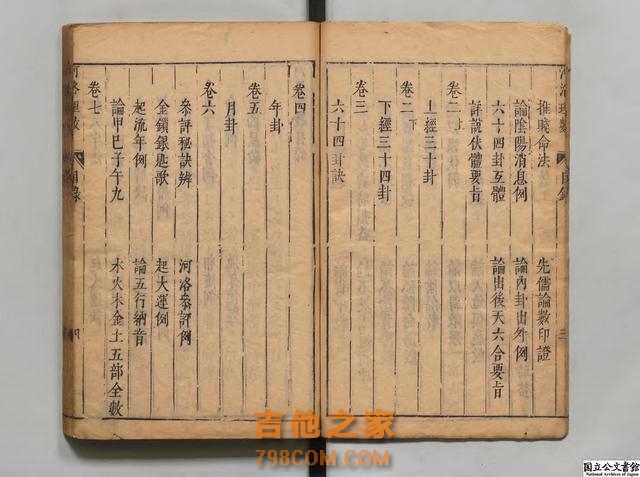 推驗命法
先儒論數印證
論陰陽消息例
論內卦出外例
六十四卦互體
論出後天六合要旨
詳說伏體要旨
卷二上
上經三十卦
卷二下
下經三十四卦
卷三
六十四卦訣
三
河洛理數
目錄
卷四
年卦
卷五
月卦
卷六
叅評秘訣辨
河洛叅評例
金鎖銀匙歌
起大運例
起流年例
論五行納音
論甲巳子午九
水火木金土五部全數
卷七
河洛理數
目錄
四
吉他之家
798COM.COM
国立公文書館
National Archives of Japan